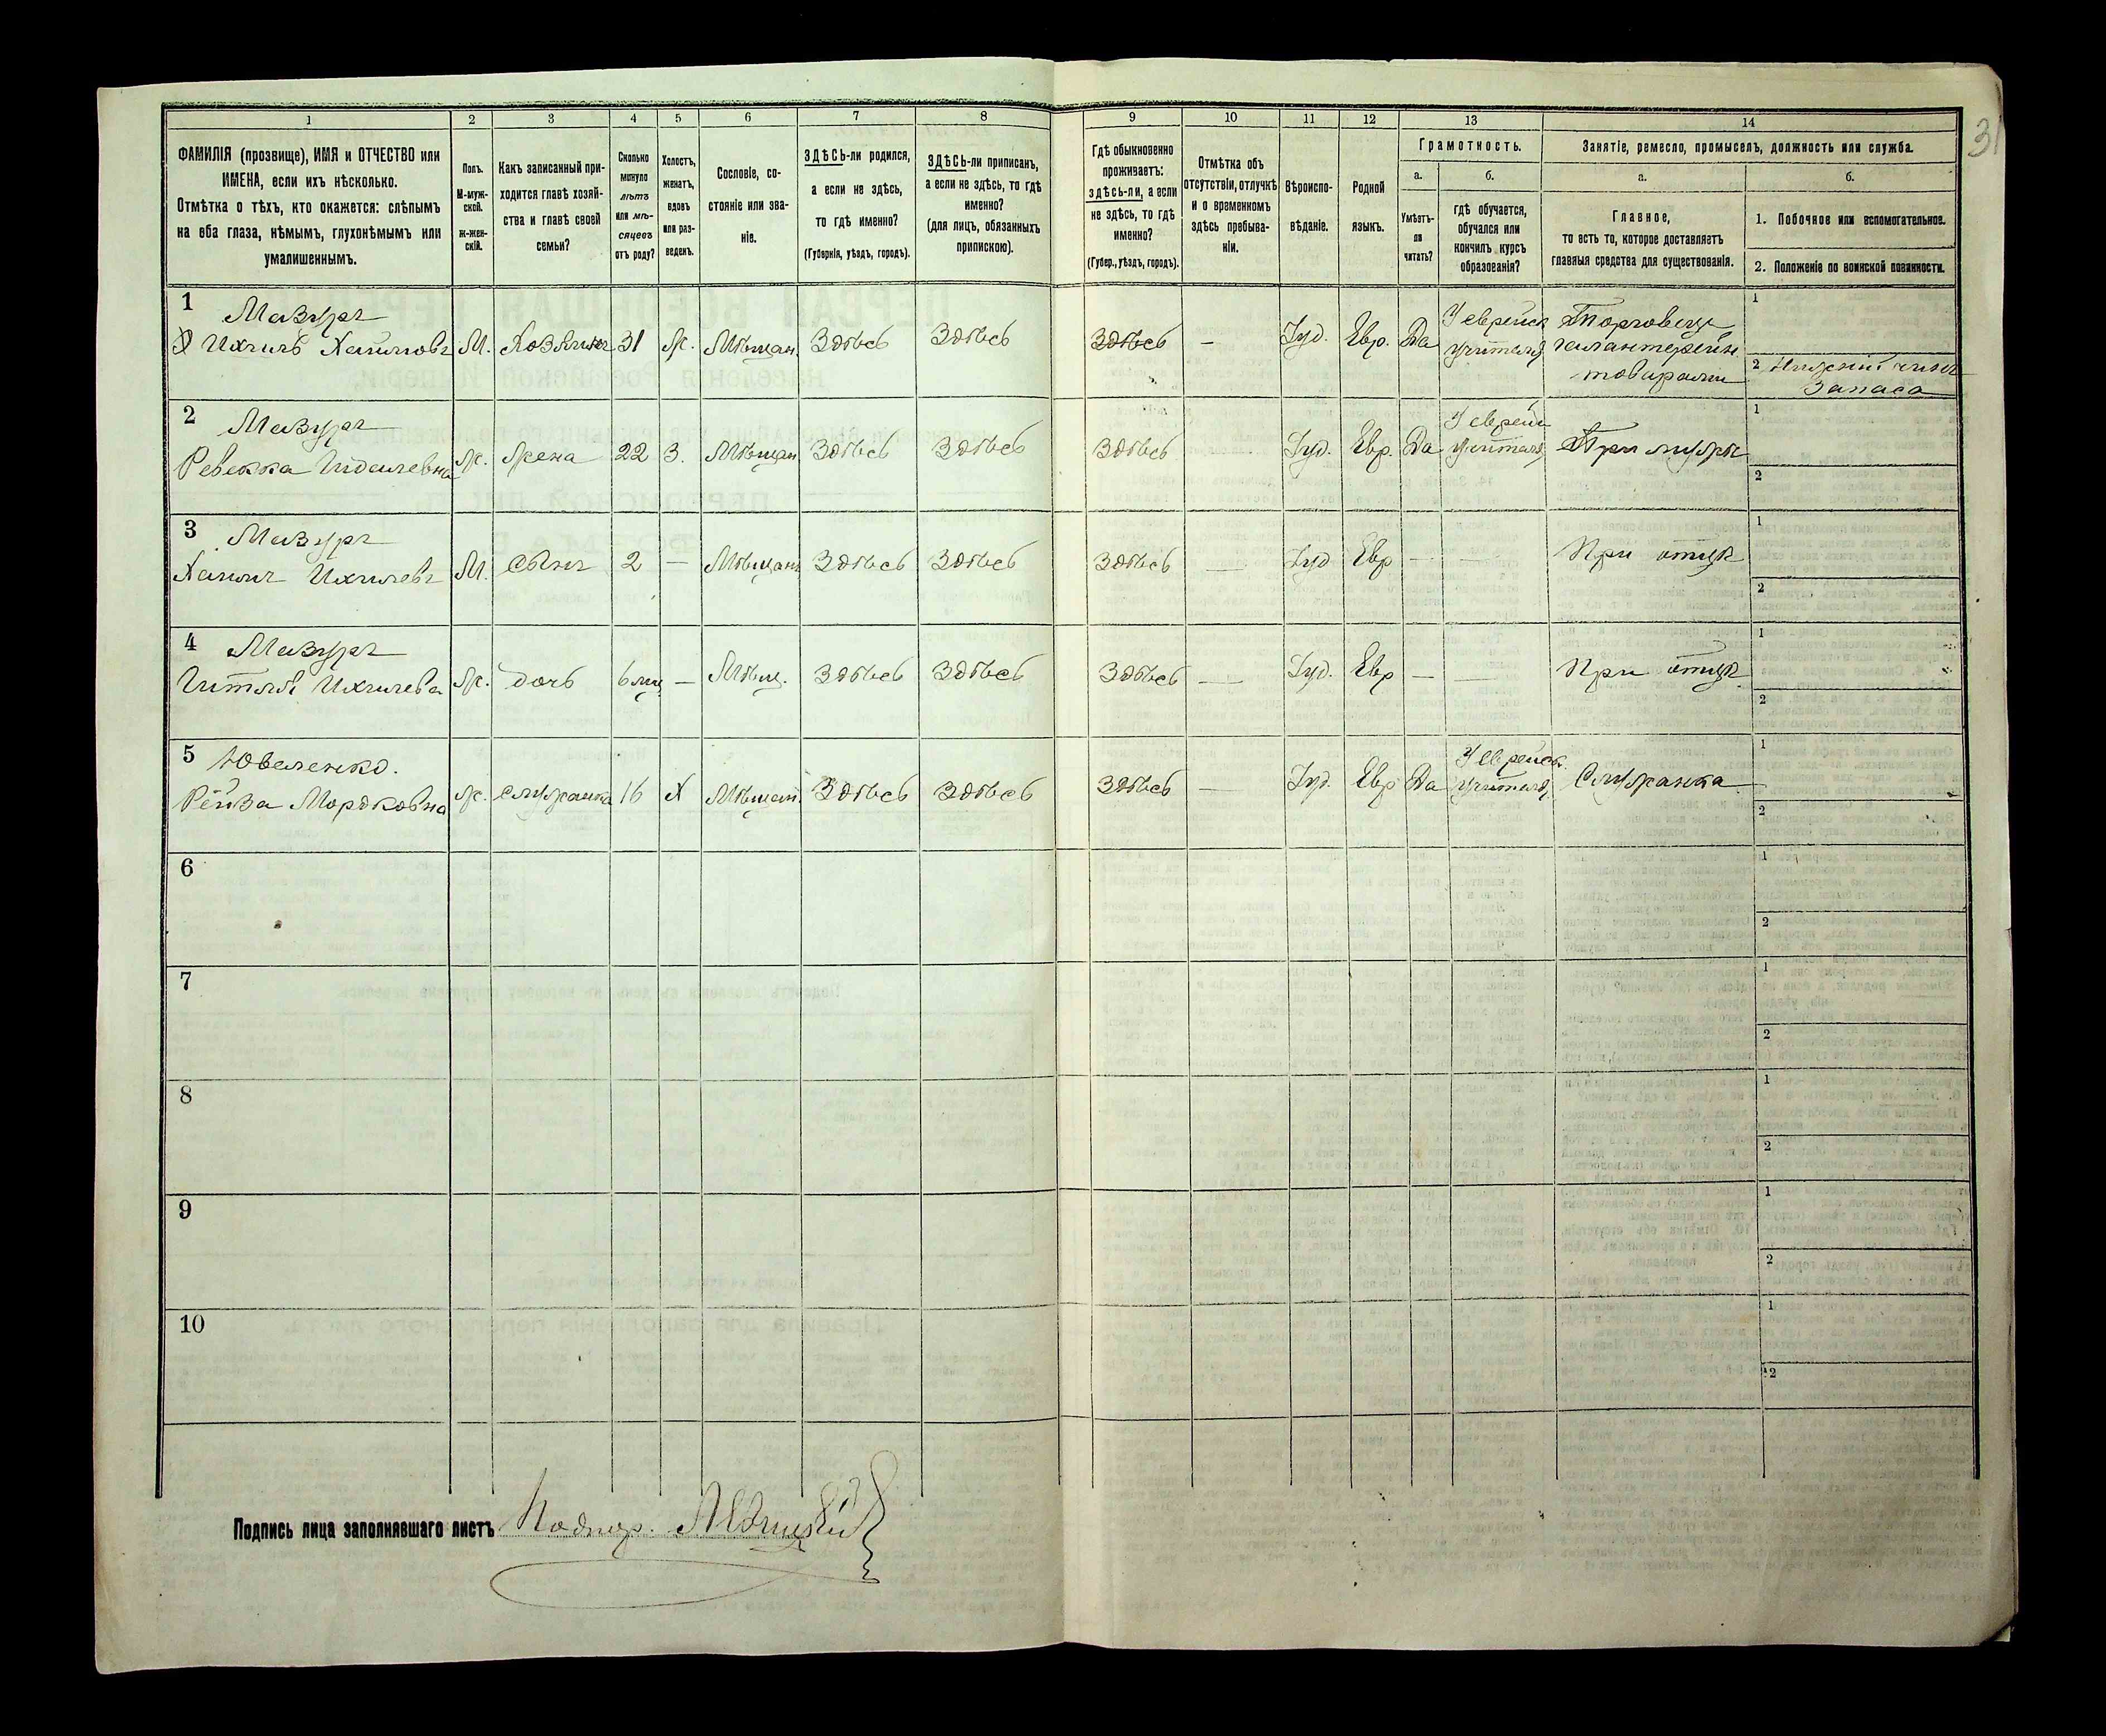 31
1 2 3 4 5 6 7 8 9 10 11 12 13 14
ФАМИЛІЯ (прозвище), ИМЯ и ОТЧЕСТВО или
ИМЕНА, если ихъ нѣсколько.
Отмѣтка о тѣхъ, кто окажется: слѣпымъ
на оба глаза, нѣмымъ, глухонѣмымъ или
умалишеннымъ.
Полъ.
М-муж-
ской.
ж-жен-
скій.
Какъ записанный при-
ходится главѣ хозяй-
ства и главѣ своей
семьи?
Сколько
минуло
лѣтъ
или мѣ-
сяцевъ
отъ роду?
Холостъ,
женатъ,
вдовъ
или раз-
веденъ.
Сословіе, со-
стояніе или зва-
ніе.
ЗДѢСЬ-ли родился,
а если не здѣсь,
то гдѣ именно?
(Губернія, уѣздъ, городъ).
ЗДѢСЬ-ли приписанъ,
а если не здѣсь, то гдѣ
именно?
(для лицъ, обязанныхъ
припискою).
Гдѣ обыкновенно
проживаетъ:
здѣсь-ли, а если
не здѣсь, то гдѣ
именно?
(Губер., уѣздъ, городъ).
Отмѣтка объ
отсутствіи, отлучкѣ
и о временномъ
здѣсь пребыва-
ніи.
Вѣроиспо-
вѣданіе.
Родной
языкъ.
Грамотность.
а.
Умѣетъ-
ли
читать?
б.
гдѣ обучается,
обучался или
кончилъ курсъ
образованія?
Занятіе, ремесло, промыселъ, должность или служба.
а.
Главное,
то есть то, которое доставляетъ
главныя средства для существованія.
б.
1. Побочное или вспомогательное.
2. Положеніе по воинской повинности.
1 Мазуръ
Ихчилъ Хаимовъ М. Хозяинъ 31 Ж. Мѣщан. Здѣсь Здѣсь Здѣсь — Іуд. Евр. Да
У еврейск
учителя
Торговецъ
галантерейн
товарами
1
2 Нижній чинъ
запаса
2 Мазуръ
Ревекка Іиделевна Ж. Жена 22 З. Мѣщан Здѣсь Здѣсь Здѣсь Іуд. Евр. Да
У еврейс
учителя
При мужѣ
1
2
3 Мазуръ
Хаимъ Ихчилевъ М. Сынъ 2 — Мѣщанъ Здѣсь Здѣсь Здѣсь — Іуд Евр — — При отцѣ
1
2
4 Мазуръ
Гитля Ихчилева Ж. дочь 6 мц — Мѣщ. Здѣсь Здѣсь Здѣсь — Іуд. Евр — — При отцѣ
1
2
5 Ювеленко.
Рейза Мордковна Ж. служанка 16 Х Мѣщан. Здѣсь Здѣсь Здѣсь — Іуд. Евр Да
У еврейск.
учителя
Служанка
1
2
6
1
2
7
1
2
8
1
2
9
1
2
10
1
2
Подпись лица заполнявшаго листъ Подпор.